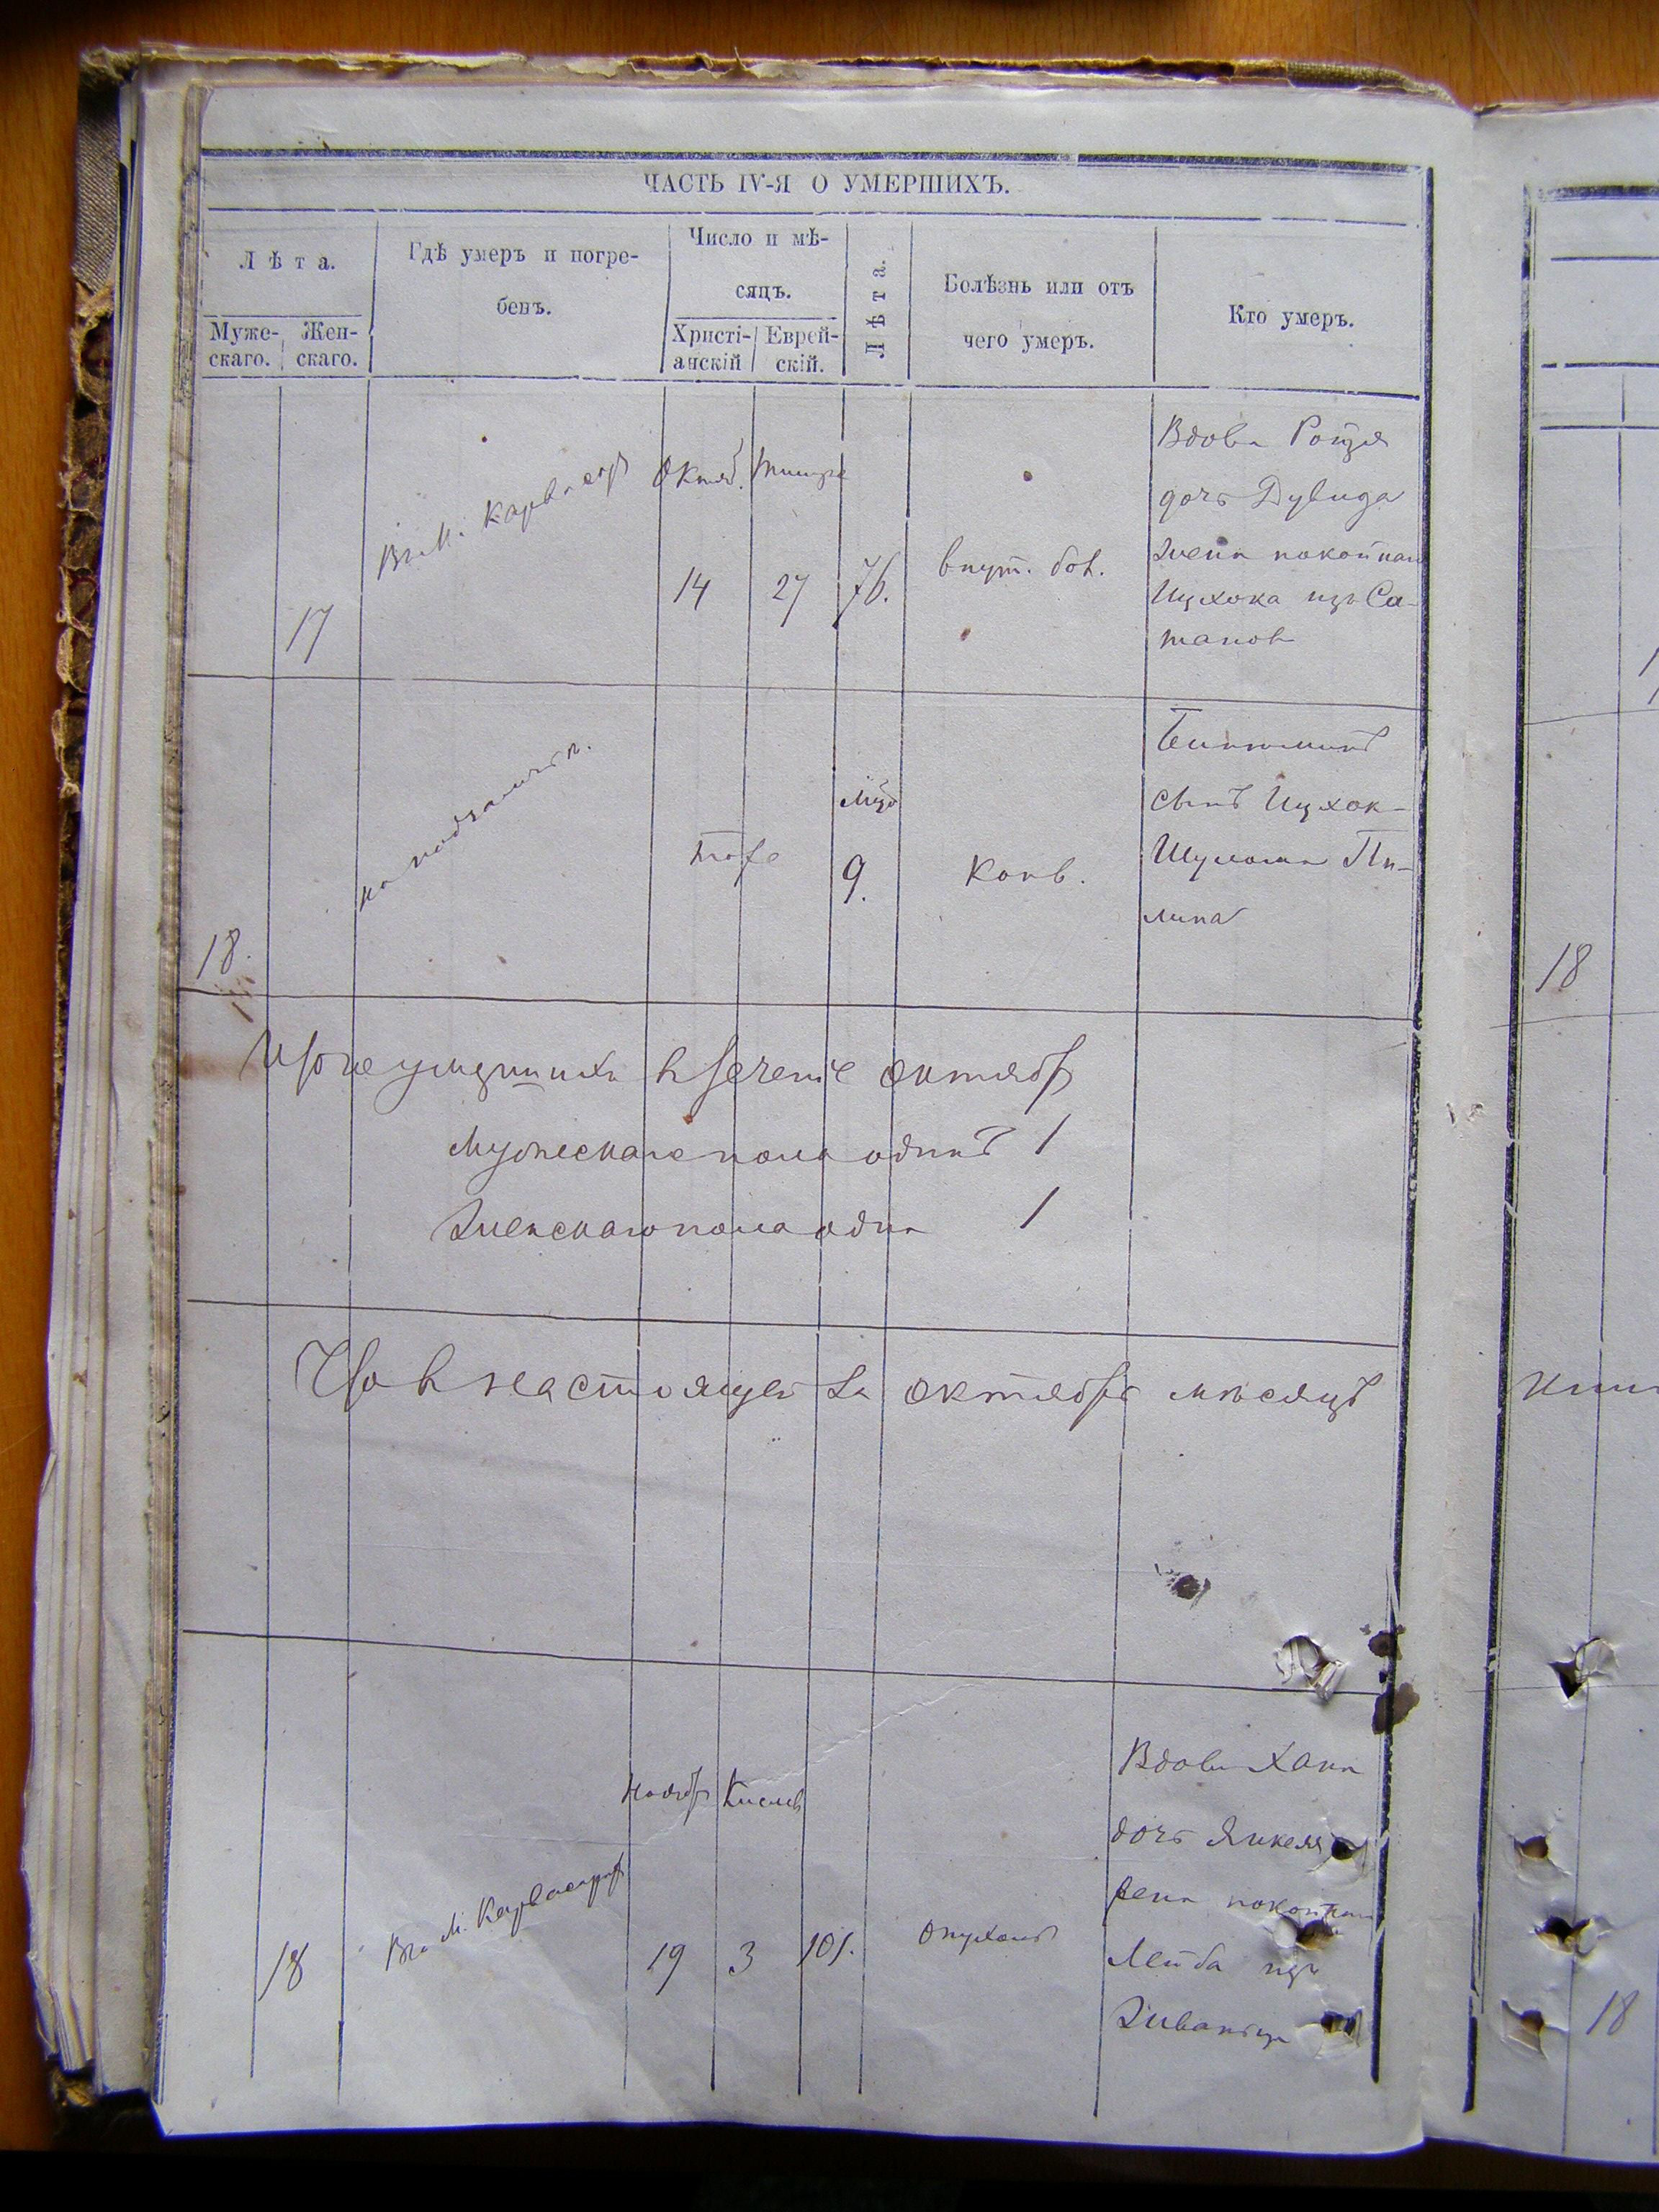 ЧАСТЬ IV-Я О УМЕРШИХЪ.
Лѣта.
Муже-
скаго.
Жен-
скаго.
Гдѣ умеръ и погре-
бенъ.
Число и мѣ-
сяцъ.
Христі-
анскій
Еврей-
скій.
Лѣта.
Болѣзнь или отъ
чего умеръ.
Кто умеръ.
17
Въ м. Карвасар
Октяб.
14
Тишре
27
76.
внут. бол.
Вдова
дочь Дувида
жена покойнаго
Ицхока изъ Са-
танов
18.
на
тоже
Мѣс
9.
Конв.
Бинюминъ
сынъ Ицхок-
Шулома
Итого умершихъ въ теченіе октябр
Мужескаго пола одинъ 1
Женскаго пола одна 1
Что в настоящей за октябрь мѣсяцъ
18
Въ м. Карвасарах
Ноябр
19
Кислев
3
101.
опухоль
Вдова Хана
дочь Янкеля
жена покойнаго
Лейба изъ
Жванца
18
18